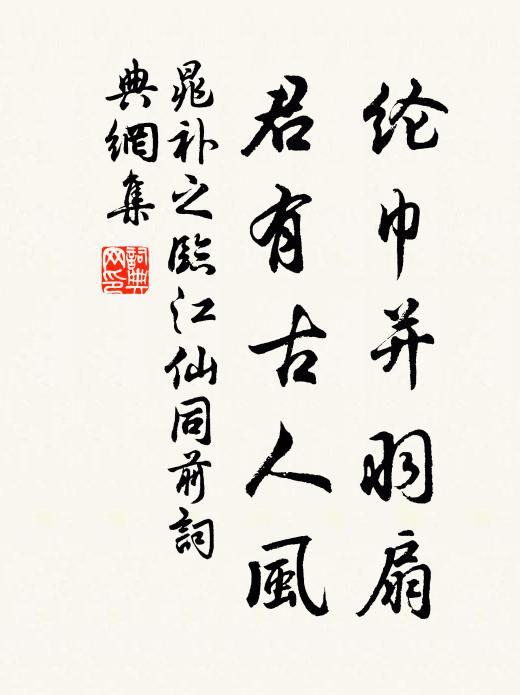 纶巾并羽扇
君有古人風
晁补之臨江仙同前詞
典網集
詞典网印